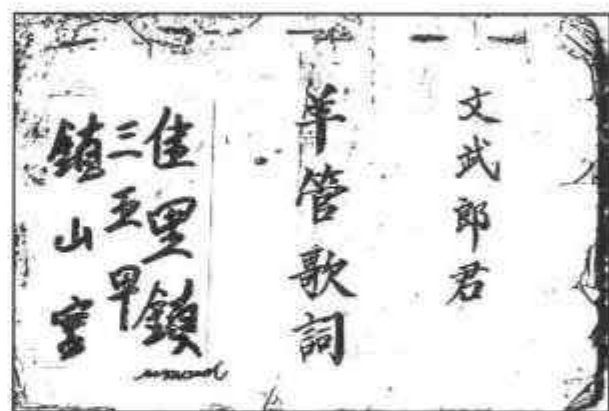 文武郎君
羊管歌詞
佳里鎮
三五甲
鎮山宮